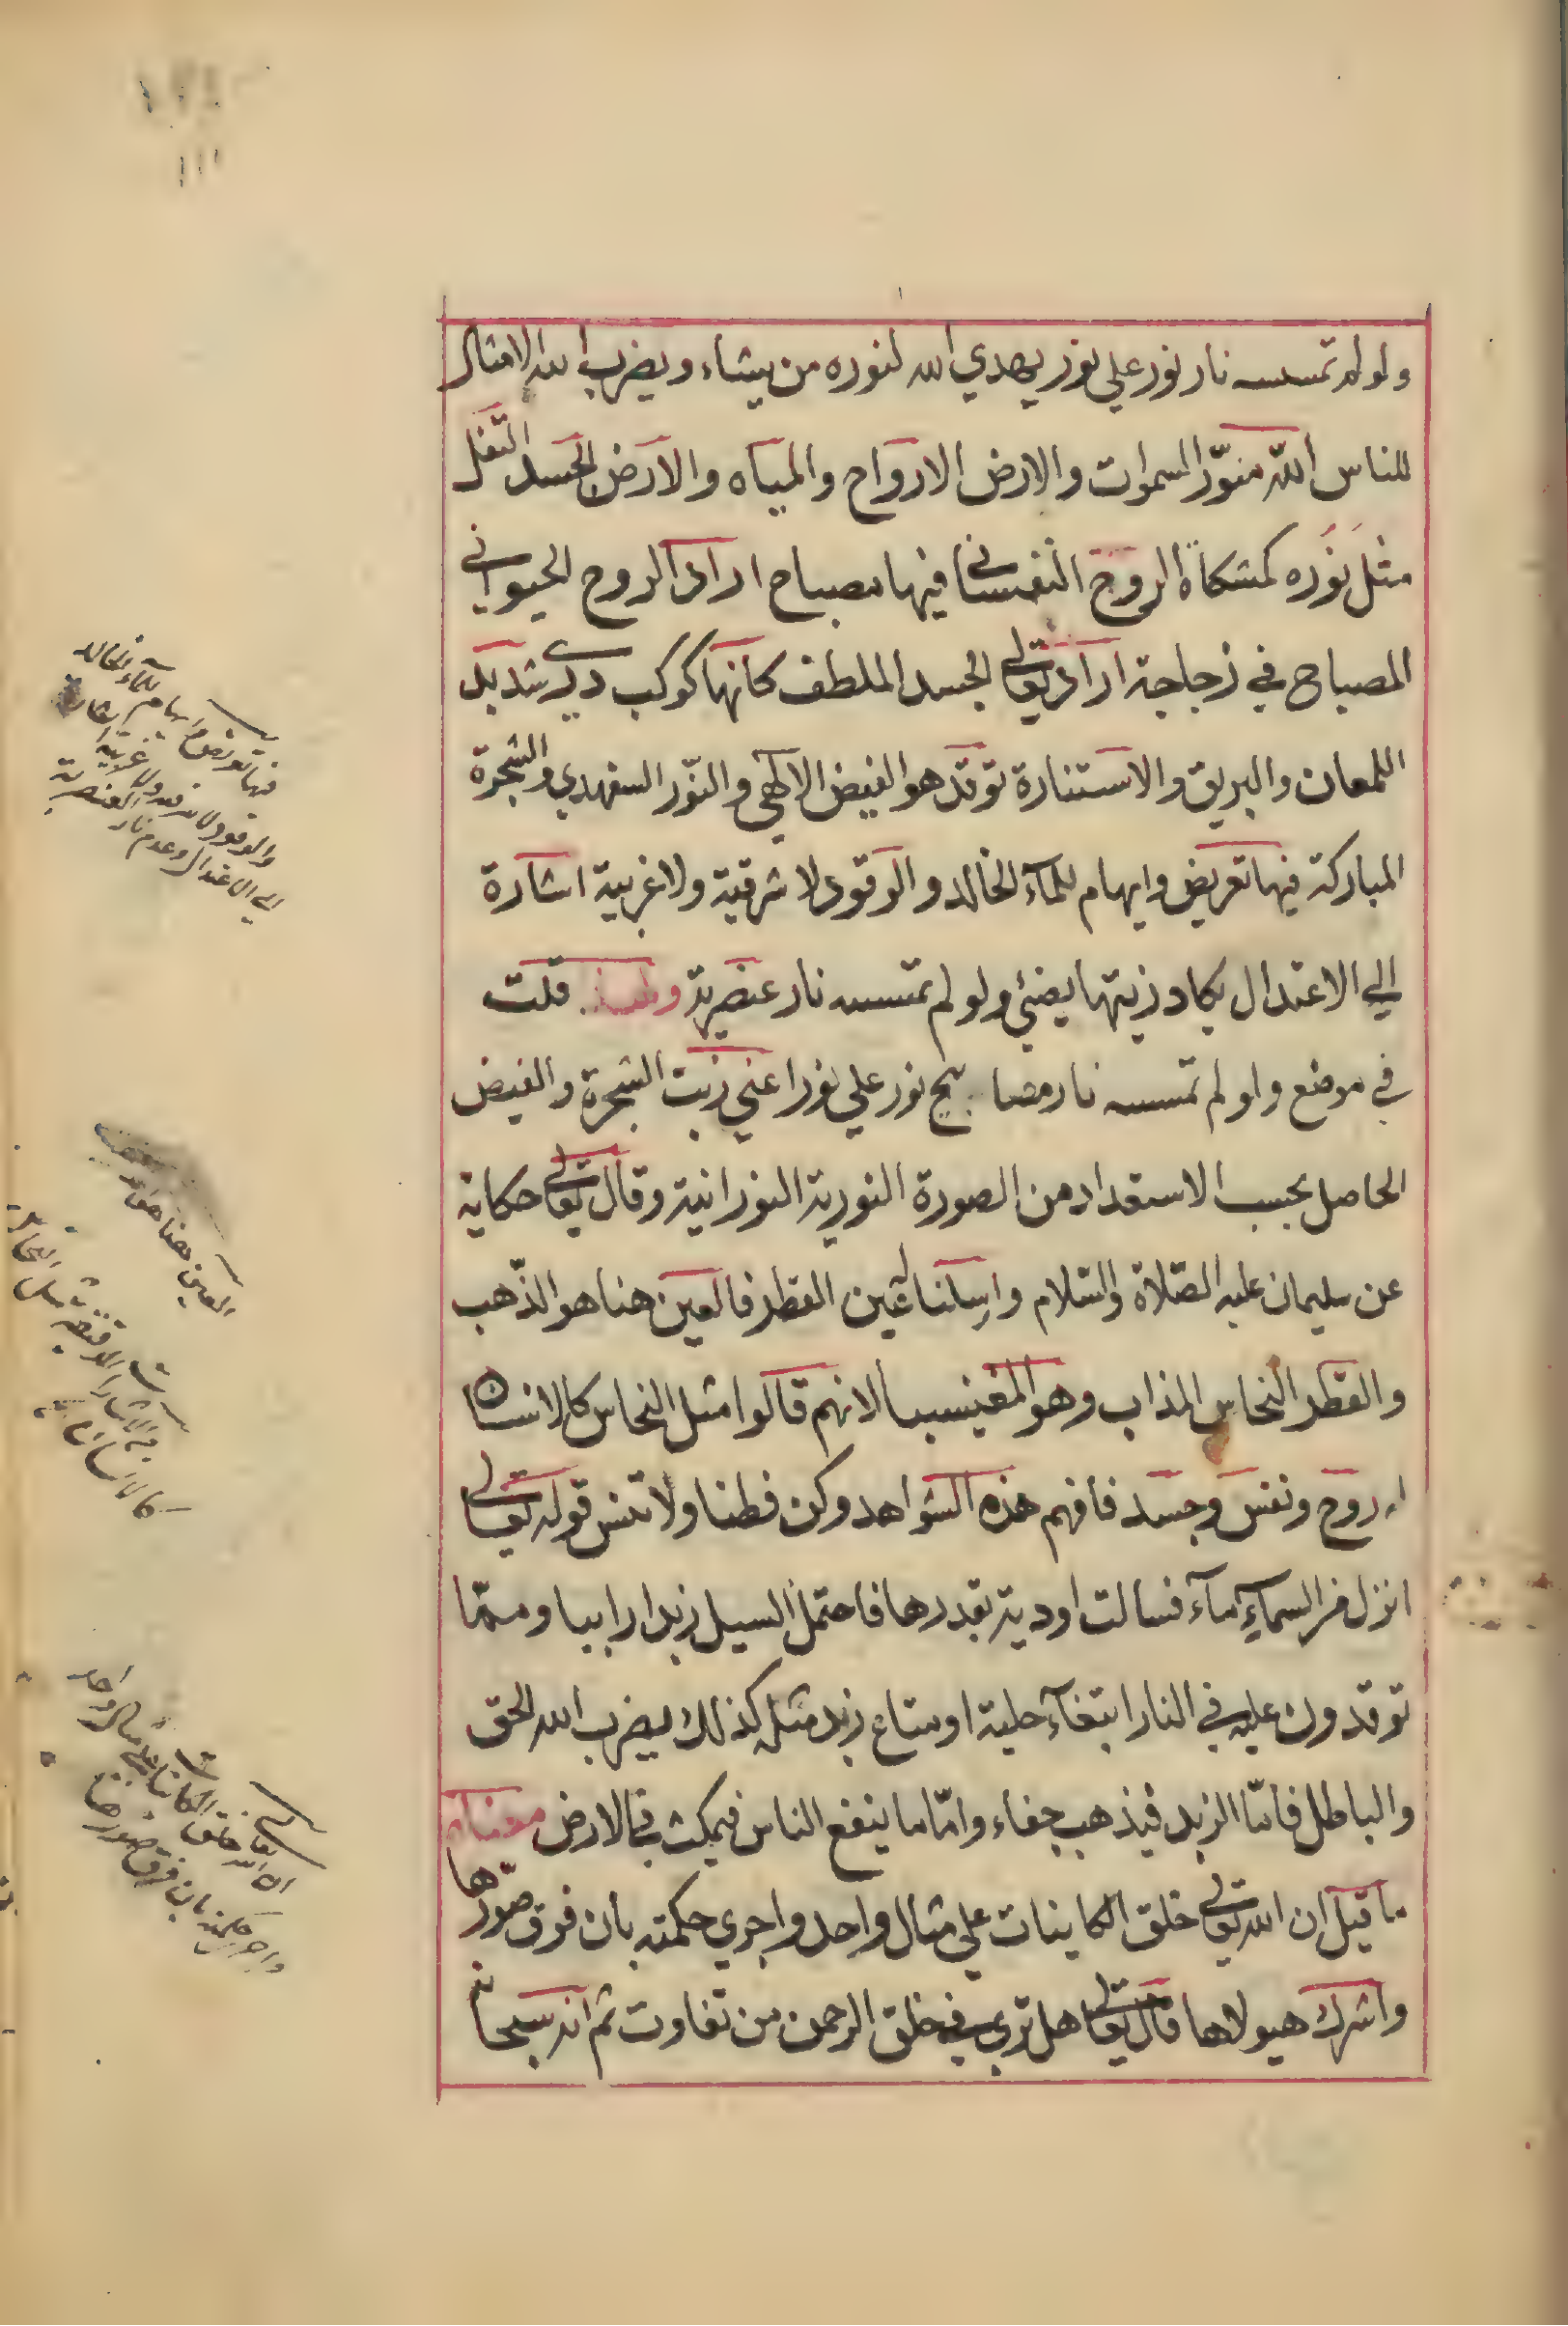 ولو لم تمسسه نار نور علي نور يهدي الله لنوره من يشاء ويضرب الله الامثال
للناس الله منوّر السموات والارض الارواح والمياه والارض الجسد الثفل
مثل نوره كمشكاة الروح النفساني فيها مصباح اراد الروح الحيواني
المصباح في زجاجة اراد تعالى الجسد الملطف كانها كوكب دري شديد
اللمعان والبريق والاستنارة توقد هو الفيض الالهي والنّور السفهدي والشجرة
المباركة فيها تعريض وايهام للمآء الخالد والوقود لا شرقية ولا غربية اشارة
الي الاعتدال يكاد زيتها يضئ ولو لم تمسسه نار عنصرية قلت
في موضع ولو لم تمسسه نار مصابيح نور علي نور اعني زيت الشجرة والفيض
الحاصل بحسب الاستعداد من الصورة النورية النورانية وقال تعالى حكاية
عن سليمان عليه الصّلاة والسّلام واسلنا له عين القطر فالعين هنا هو الذّهب
والقطر النحاس المذاب وهو المغنيسيا لانهم قالوا مثل النحاس كالانسان
له روح ونفس وجسد فافهم هذه الشواهد وكن فطنا ولا تنس قوله تعالى
انزل من السمآء مآء فسالت اودية بقدرها فاحتمل السيل زبدا رابيا وممّا
توقدون عليه في النار ابتغآء حلية او متاع زبد مثله كذلك يضرب الله الحق
والباطل فامّا الزبد فيذهب جفاء وامّا ما ينفع الناس فيمكث في الارض معناه
ما قيل ان الله تعالى خلق الكاينات علي مثال واحد واجري حكمته بان فرق صورها
واشرك هيولاها قال تعالى هل تري في خلق الرحمن من تفاوت ثم انه سبحانه
فيها تعريض وايهام للمآء الخالد
والوقود لا شرقية ولا غربية
الي الاعتدال وعدم نار العنصرية
العين هنا هو
كالانسان
ان الله تعالى خلق الكاينات علي مثال واحد
واجري حكمته بان فرق صورها